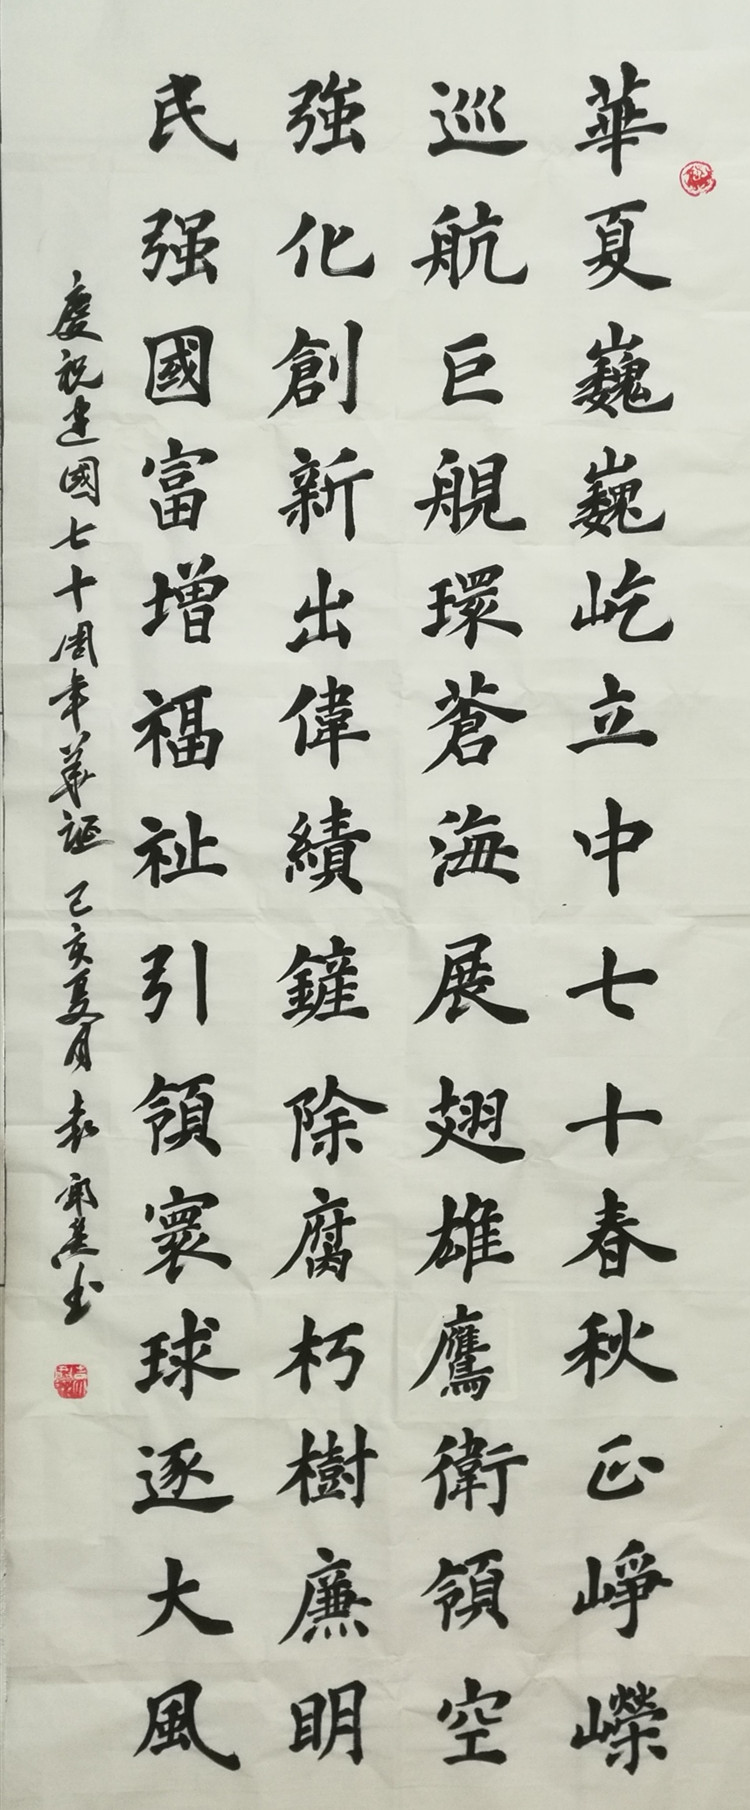 華夏巍巍屹立中七十春秋正崢嶸
巡航巨艦環蒼海展翅雄鷹衛領空
強化創新出偉績鏟除腐朽樹廉明
民强國富增福祉引領寰球逐大風
慶祝建國七十周年華誕 己亥夏月 袁